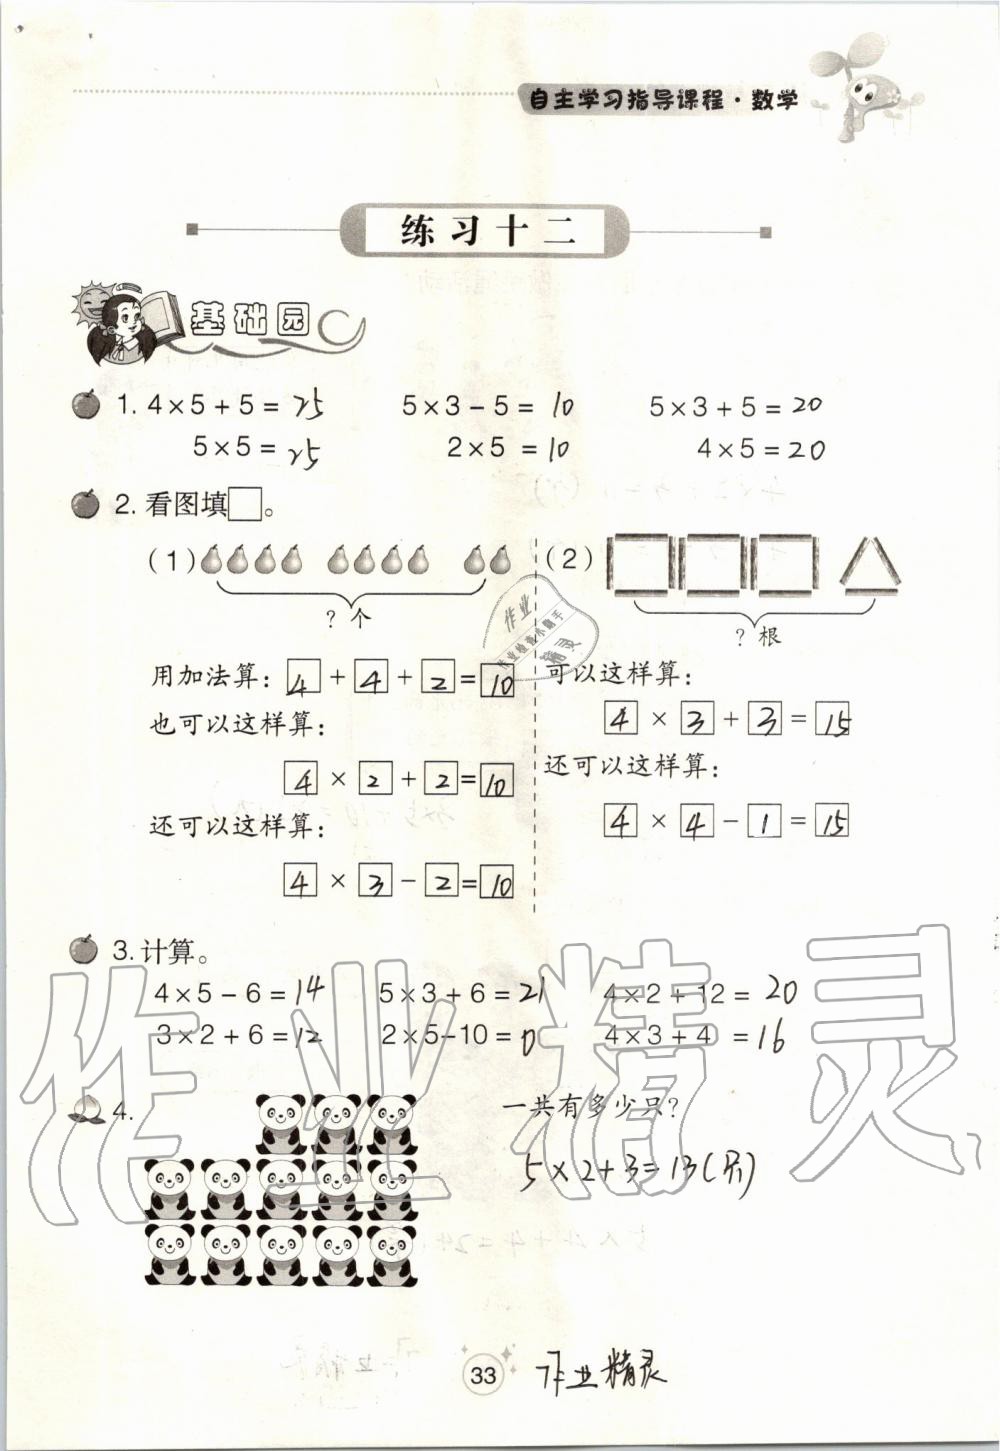 自主学习指导课程·数学
练习十二
基础园
1. 4×5+5= 25 5×3-5= 10 5×3+5= 20
5×5= 25 2×5= 10 4×5= 20
2. 看图填□。
(1) (2)
?个 ?根
用加法算: 4 + 4 + 2 = 10
可以这样算:
也可以这样算:
4 × 3 + 3 = 15
4 × 2 + 2 = 10
还可以这样算:
还可以这样算:
4 × 4 - 1 = 15
4 × 3 - 2 = 10
3. 计算。
4×5-6= 14 5×3+6= 21 4×2+12= 20
3×2+6= 12 2×5-10= 0 4×3+4 = 16
4. 一共有多少只?
5×2+3=13(只)
33 作业精灵
作业精灵
作业
作业检查小助手
精灵